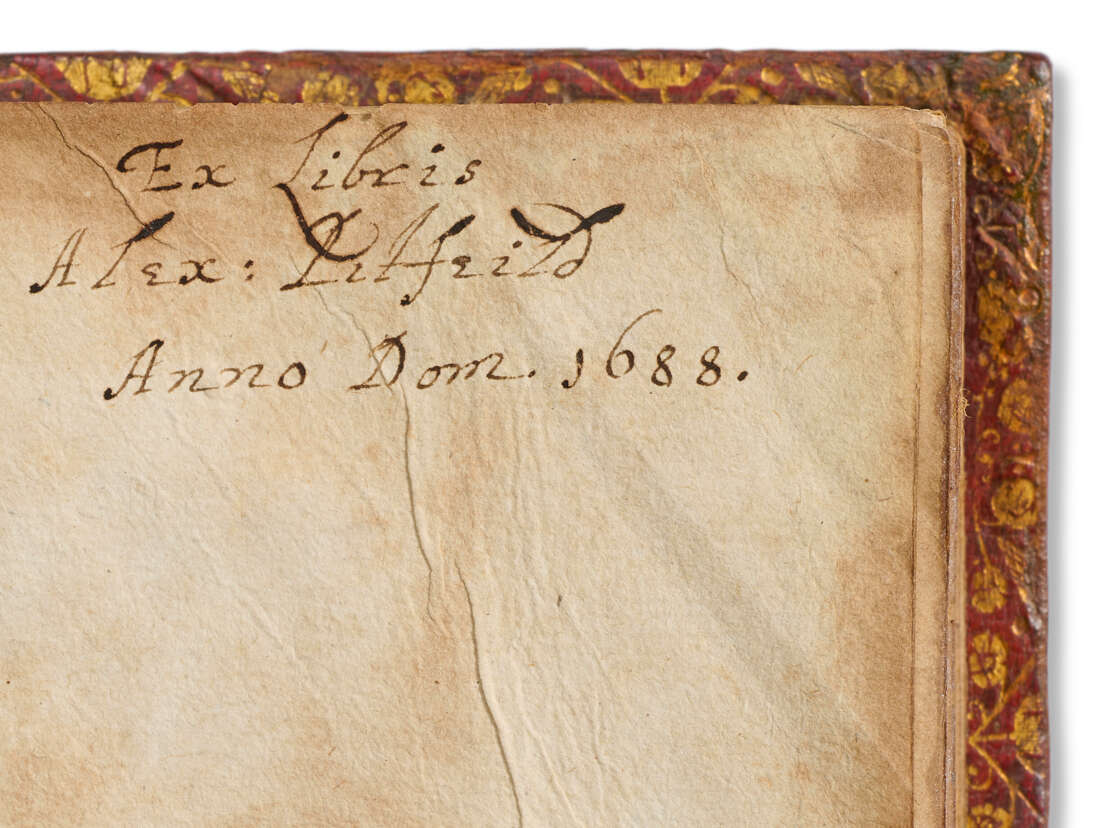 Ex Libris
Alex: Litfeild
Anno Dom. 1688.